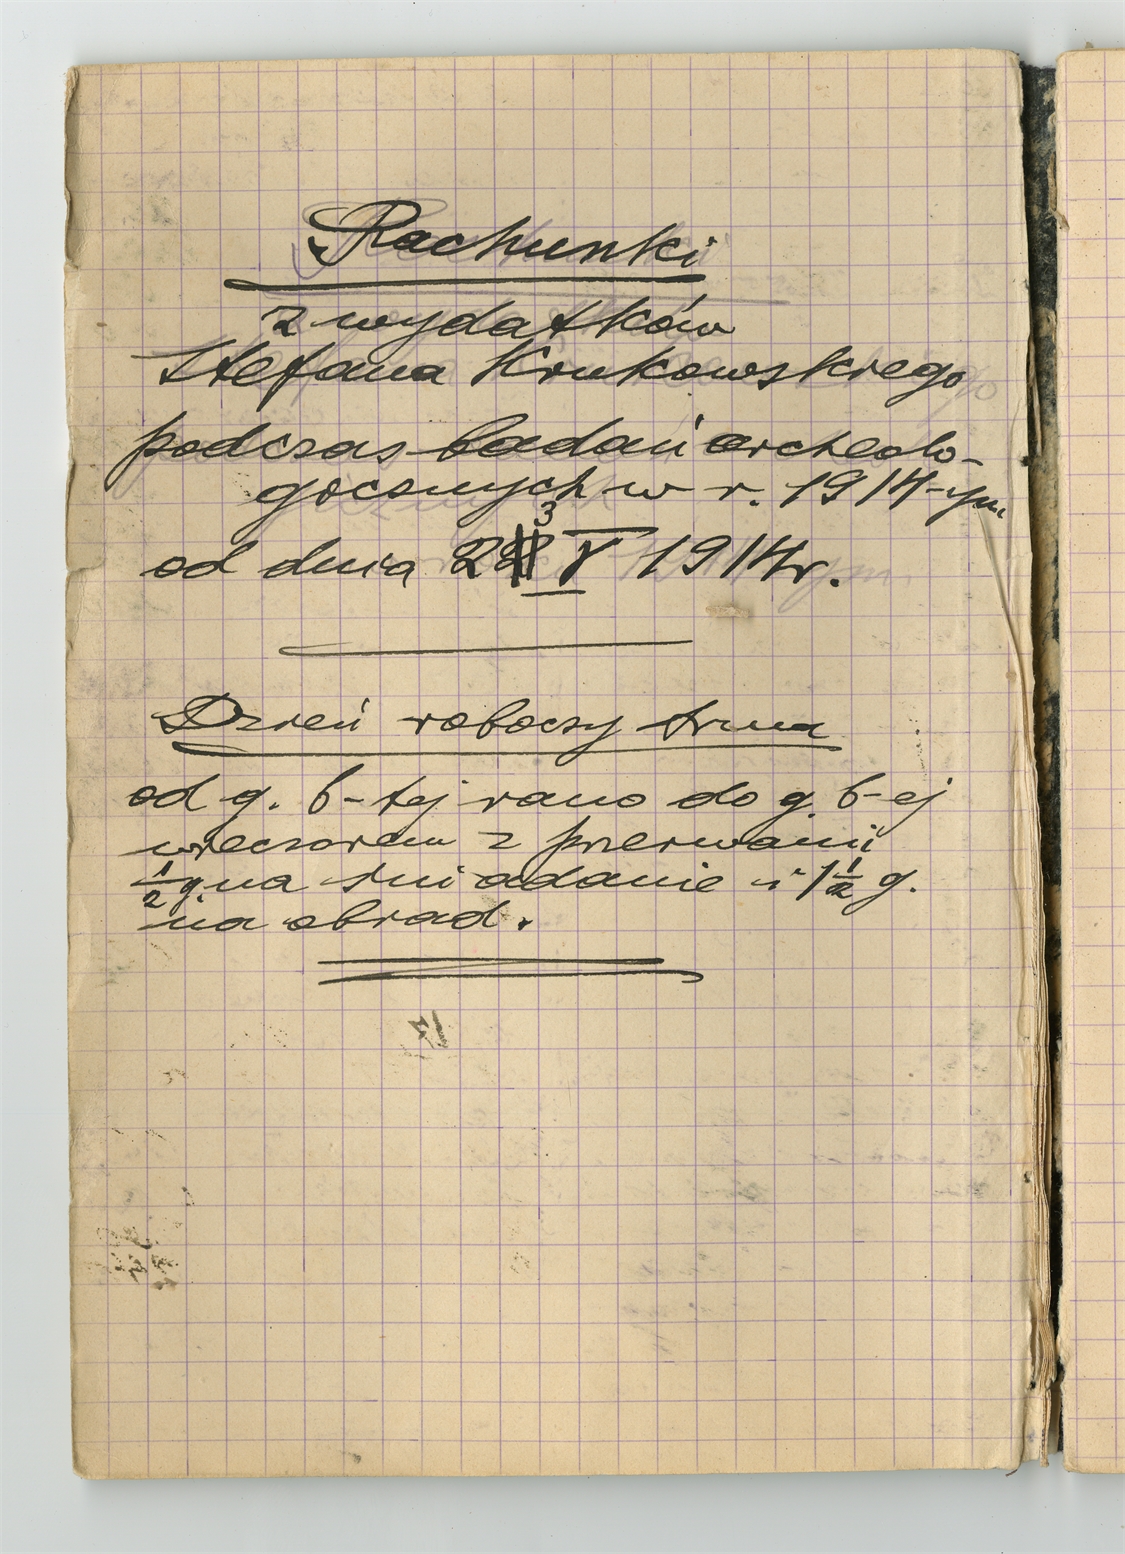 Rachunki
z wydatków
Stefana Krukowskiego
podczas badań archeolo-
gocznych w r. 1914-ym
od dnia 23 V 1914 r.
Dzień roboczy trwa
od g. 6-tej rano do g. 6-ej
wieczorem z przerwami
1/2 g. na śniadanie i 1 1/2 g.
na obiad.